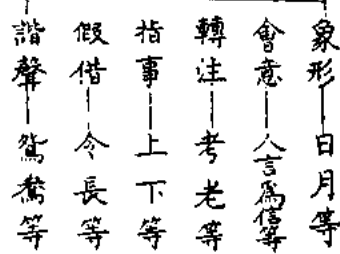 象形—日月等
會意—人言爲信等
轉注—考老等
指事—上下等
假借—令長等
諧聲—鴛鴦等